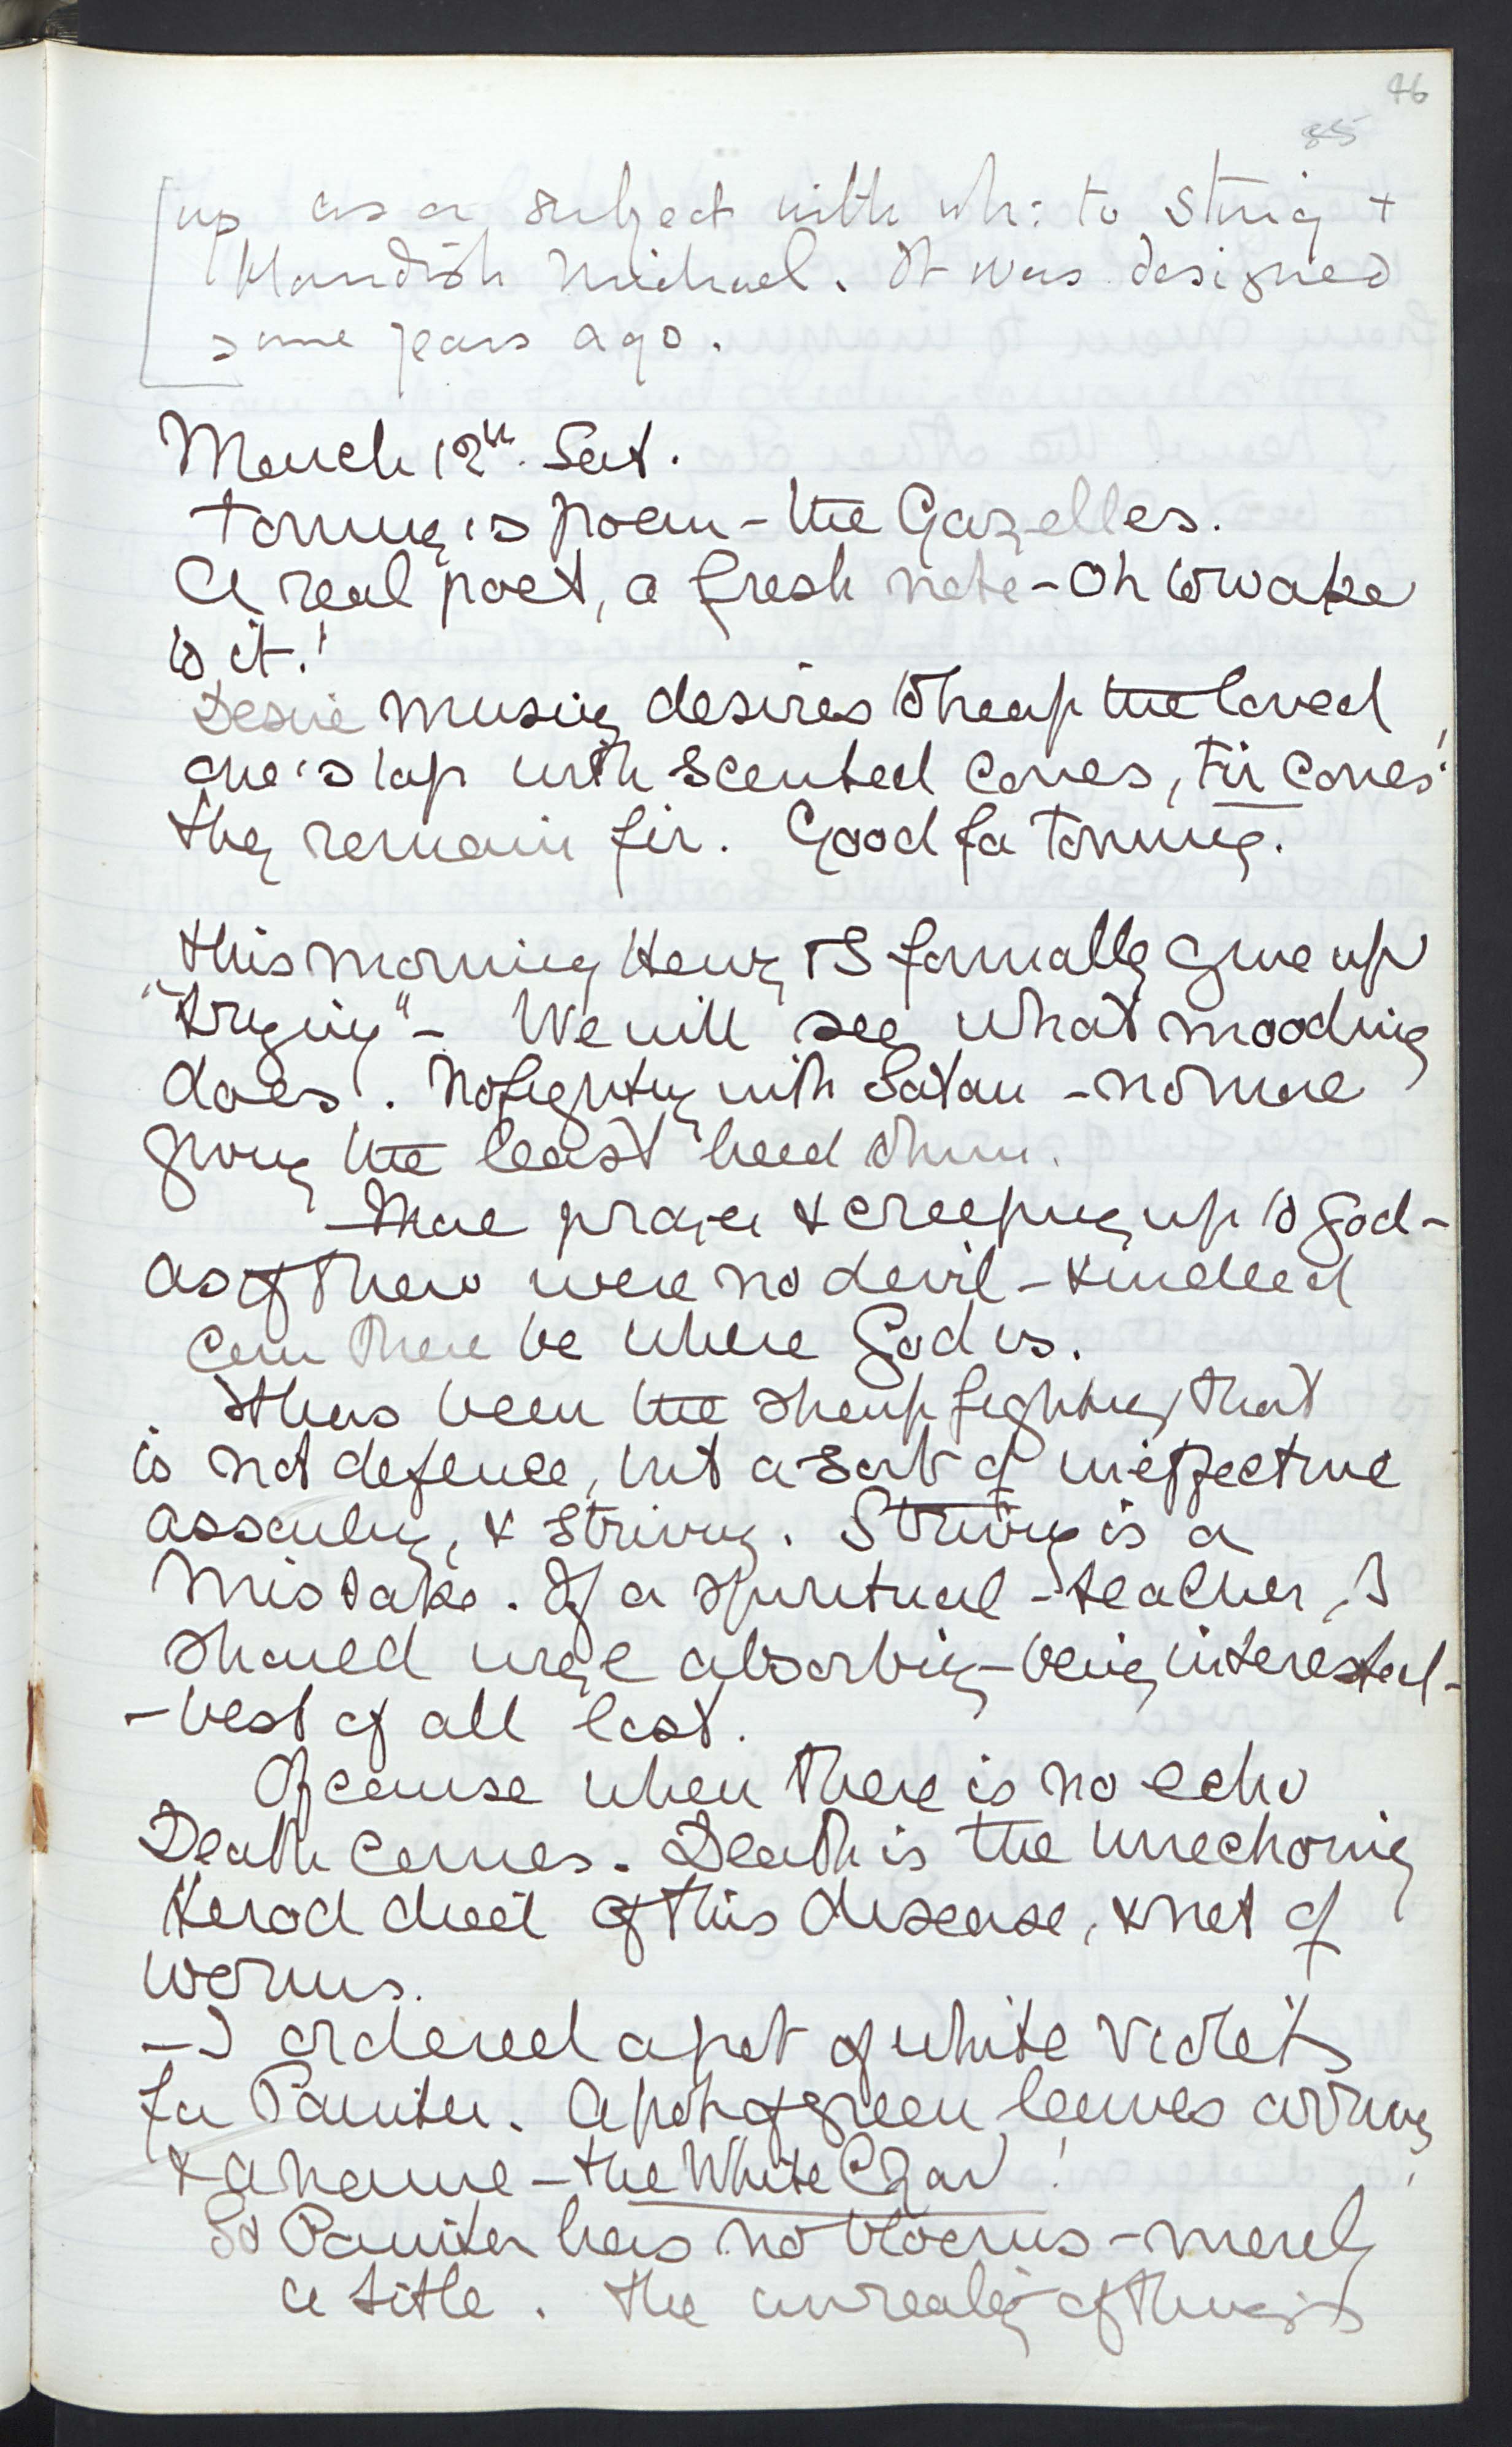 46
85
up as a subject with wh: to string +
Mandish Michael. It was designed
some years ago.
March 12th. Sat.
Tommy's poem – the Gazelles.
A real poet, a fresh note – Oh to wake
to it!
Desire musing desires to heap the loved
one's lap with scented cones, fir cones!
they remain fir. Good for Tommy.
This morning Henry & I formally give up
"trying" – We will see what mooding
does. No fighting with Satan – no more
giving the least heed to him.
– More prayer & creeping up to God –
as if there were no devil – & indeed
can there be where God is.
It has been the sharp fighting, that
is not defence, but a sort of ineffective
, & striving. Striving is a
mistake. If a spiritual – teacher, I
should urge absorbing – being interested –
– best of all lost.
Of course when there is no echo
Death comes. Death is the unechoing
Herod died of this disease, & not of
worms.
– I ordered a pot of white violets
for Painter. A pot of green leaves arrives
& a name – the White Czar!
So Painter has no blooms – merely
a title. The unreality of things